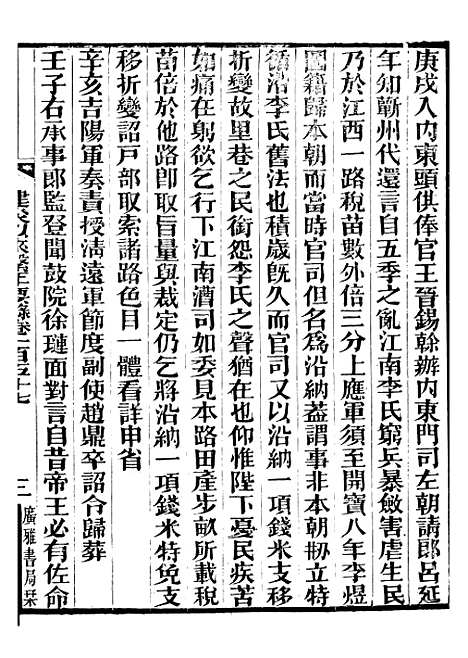 庚戌入内東頭供俸官王晉錫榦辦内東門司左朝請郎呂延
年知蘄州代還言自五季之亂江南李氏窮兵暴斂害虐生民
乃於江西一路稅苗數外倍三分上應軍須至開寶八年李煜
圖籍歸本朝而當時官司但名爲沿納葢謂事非本朝刱立特
循沿李氏舊法也積歲旣久而官司又以沿納錢米支移
折變故里巷之民銜怨李氏之聲猶在也仰惟陛下憂民疾苦
如痛在躬欲乞行下江南漕司如委見本路田產步畝所載稅
苗倍於他路卽取旨量與裁定仍乞將沿納一項錢米特免支
移折變詔戸部取索諸路色目一體看詳申省
辛亥吉陽軍奏責授淸遠軍節度副使趙鼎卒詔令歸葬
壬子右承事郎監登聞鼓院徐璉面對言自昔帝王必有佐命
建炎以來繫年要錄卷一百五十七
三
廣雅書局栞